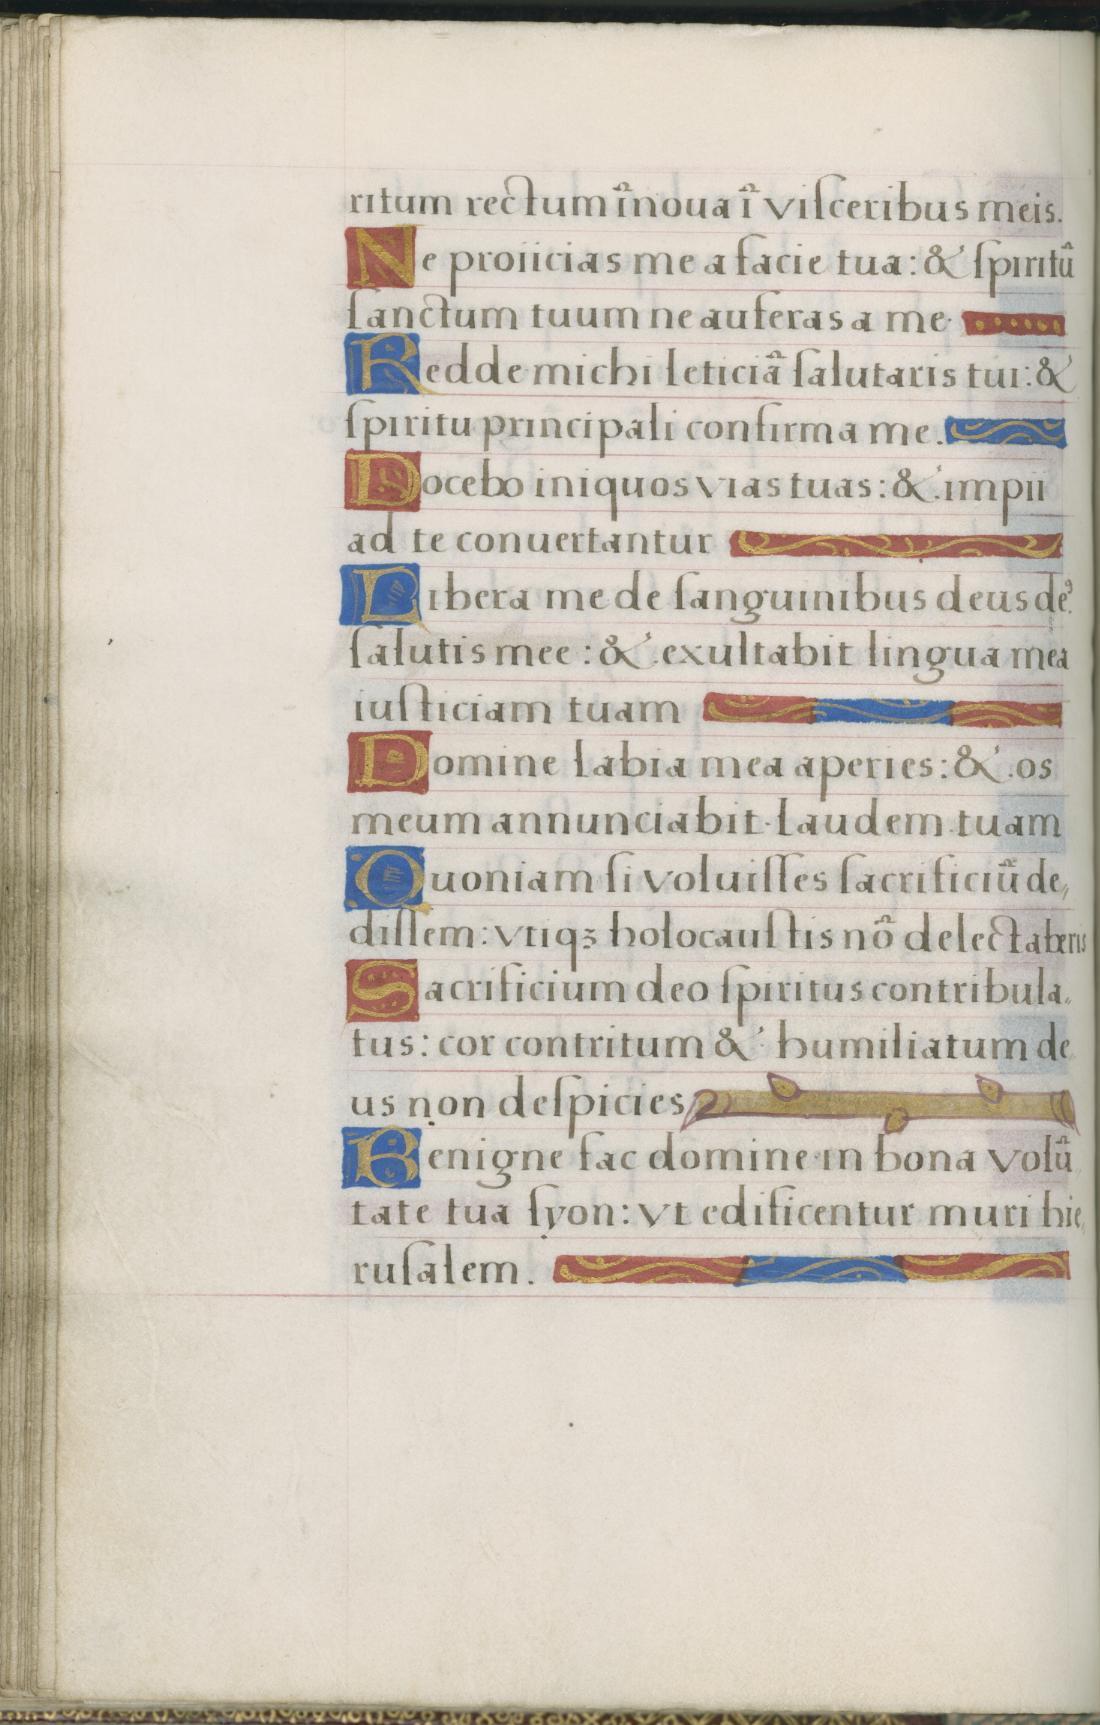 ritum rectum ĩnoua ĩ viſceribus meis.
Ne proiicias me a facie tua: & ſpiritũ
ſanctum tuum ne auferas a me.
Redde michi leticiã ſalutaris tui: &
ſpiritu principali confirma me.
Docebo iniquos vias tuas: & impii
ad te conuertantur
Libera me de ſanguinibus deus de9
ſalutis mee: & exultabit lingua mea
iuſticiam tuam
Domine labia mea aperies: & os
meum annunciabit laudem tuam
Quoniam ſi voluiſſes ſacrificiũ de„
diſſem: vtiqꝫ holocauſtis nõ delectaberis
Sacrificium deo ſpiritus contribula„
tus: cor contritum & humiliatum de
us non deſpicies
Benigne fac domine in bona volũ
tate tua ſyon: vt edificentur muri hie„
ruſalem.